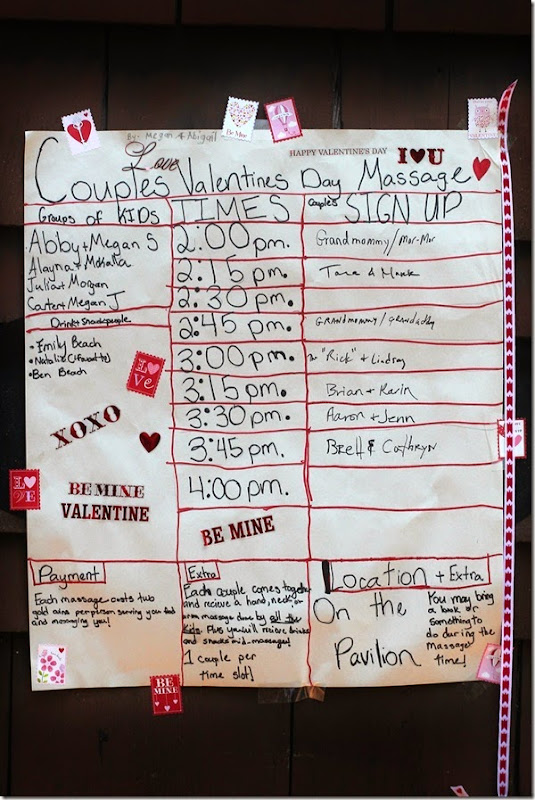 By: Megan & Abigail
Be Mine
HAPPY VALENTINE'S DAY
I U
Love
Couples Valentines Day Massage
Groups of KIDS
TIMES
Couples SIGN UP
Abby + Megan S
2:00 pm.
Grandmommy/Mor-Mor
Alayna + Makalla
2:15 pm.
Tara & Mark
Julia + Morgan
2:30 pm.
Carter + Megan J
Drink + Snack people
2:45 pm.
GRANDMOMMY/GRANDADDY
• Emily Beach
• Natalie (if awake)
• Ben Beach
3:00 pm.
"Rick" + Lindsay
LOVE
3:15 pm.
Brian + Karin
XOXO
3:30 pm.
Aaron + Jenn
3:45 pm.
Brett & Cathryn
LOVE
BE MINE
VALENTINE
4:00 pm.
BE MINE
Payment
Each massage costs two
gold coins per person serving you food
and massaging you!
Extra
Each couple comes together
and recieve a hand, neck, or
arm massage done by all the
kids. Plus you will recieve drinks
and snacks mid-massage!
1 couple per
time slot!
Location + Extra
On the
Pavilion
You may bring
a book or
something to
do during the
massage
time!
BE
MINE